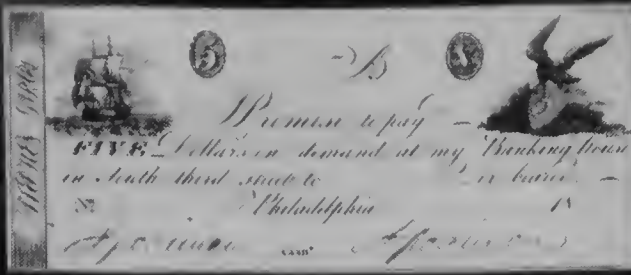 5 B 5
I Promise to pay
FIVE Dollars on demand at my Banking House
in South third street to or bearer
No Philadelphia 18
Specimen Specimen